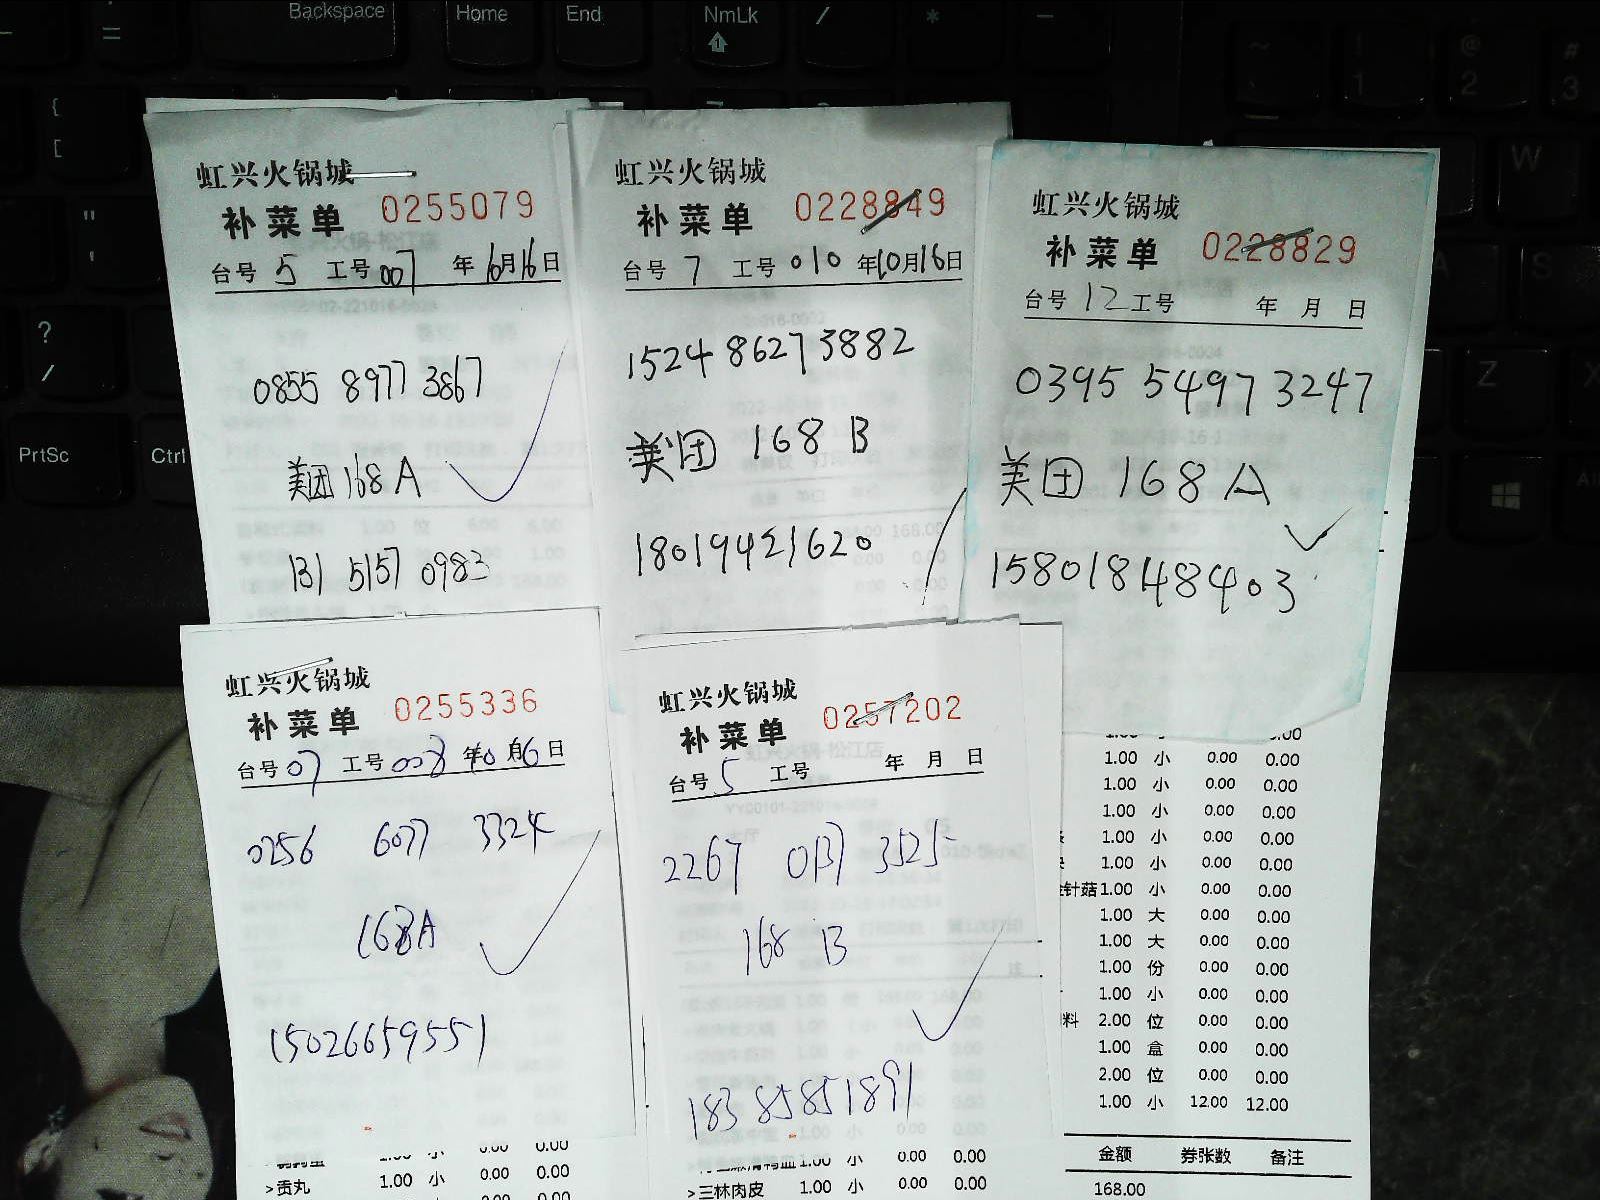 Backspace
Home
End
NmLk
PrtSc
Ctrl
虹兴火锅城
补菜单 0255079
台号 5 工号 007 年 10月16日
0855 8977 3867
美团 168 A
131 5157 0983
虹兴火锅城
补菜单 0228849
台号 7 工号 010 年10月16日
1524 8627 3882
美团 168 B
18019421620
虹兴火锅城
补菜单 0228829
台号 12 工号 年 月 日
0395 5497 3247
美团 168 A
15801848403
虹兴火锅城
补菜单 0255336
台号 07 工号 008 年10月16日
0256 6077 3324
168A
15026659551
虹兴火锅城
补菜单 0257202
台号 5 工号 年 月 日
2267 0137 3525
168 B
183 8585 1891
1.00 小 0.00 0.00
1.00 小 0.00 0.00
1.00 小 0.00 0.00
1.00 小 0.00 0.00
1.00 小 0.00 0.00
金针菇 1.00 小 0.00 0.00
1.00 大 0.00 0.00
1.00 大 0.00 0.00
1.00 份 0.00 0.00
1.00 小 0.00 0.00
料 2.00 位 0.00 0.00
1.00 盒 0.00 0.00
2.00 位 0.00 0.00
1.00 小 12.00 12.00
金额 券张数 备注
168.00
>贡丸 1.00 小 0.00 0.00
1.00 小 0.00 0.00
>三林肉皮 1.00 小 0.00 0.00